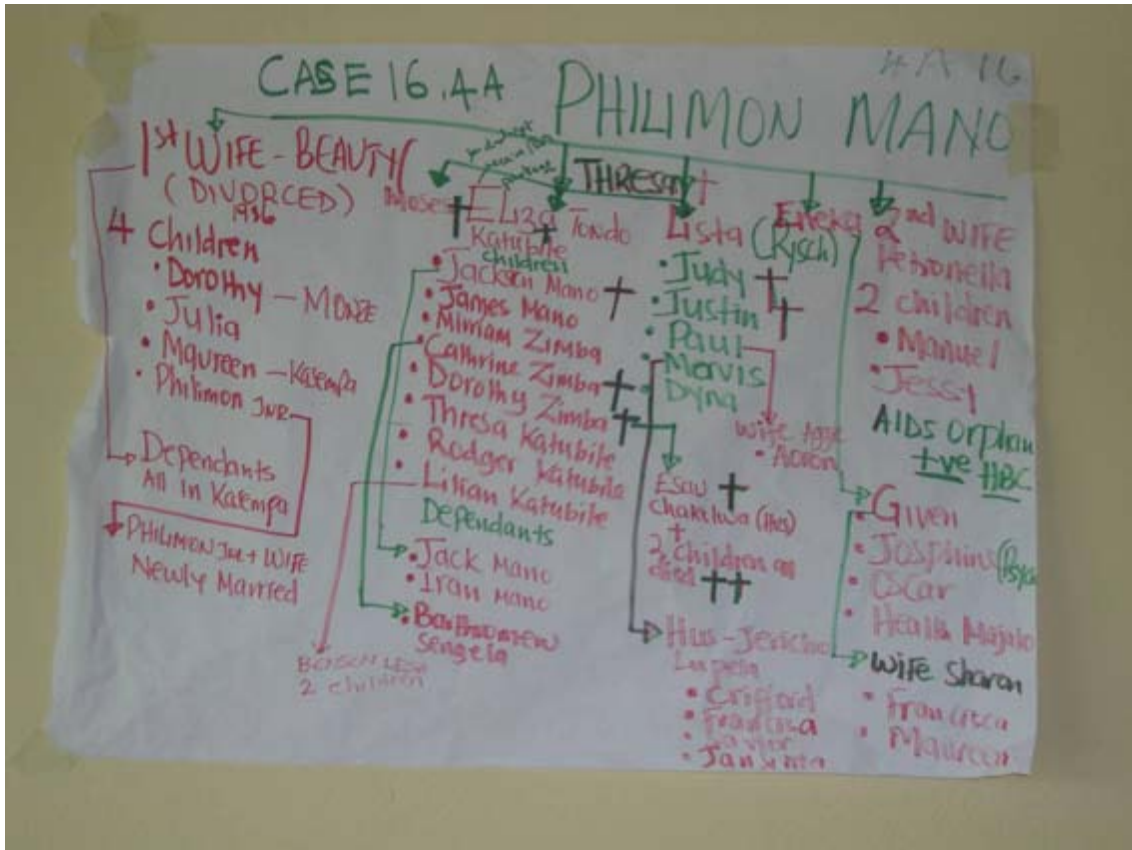 4A 16
CASE 16.4A PHILIMON MANO
1st WIFE - BEAUTY
(DIVORCED)
1986
4 Children
• Dorothy - MONZE
• Julia
• Maureen - Kasempa
• Philimon JNR
Dependants
All in Kasempa
PHILIMON Jnr + WIFE
Newly Married
Moses
Eliza Tondo
Katubite
children
• Jackson Mano
• James Mano
• Mirriam Zimba
• Cathrine Zimba
• Dorothy Zimba
• Thresa Katubite
• Rodger Katubila
Lilian Katubite
Dependants
• Jack Mano
• Iran Mano
• Barthromew
Sengela
2 children
THRESA
Lista
• Judy
• Justin
• Paul
• Mervis
• Dyna
Wife
• Aaron
Esau
2 children all
died
Hus - Jericho
Lupela
• Crifford
• Francisca
• Jansinta
Eneka
(Kisch)
2nd WIFE
Petronella
2 children
• Manuel
• Jessy
AIDS Orphan
+ve HBC
• Given
• Josphins
• Oscar
• Health Majalo
Wife Sharon
• Francisca
• Maureen